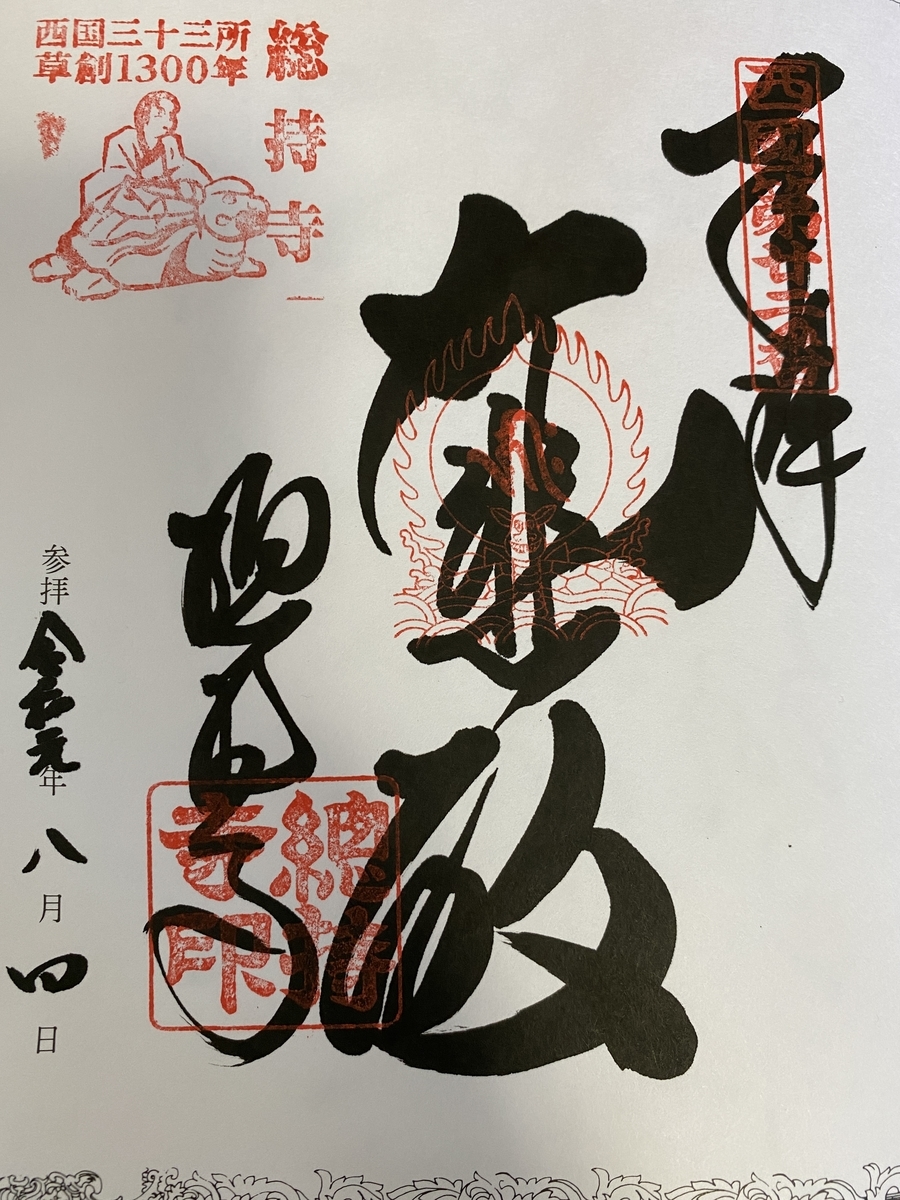 奉拝
西国第廿二番
大悲殿
総持寺
總持寺印
西国三十三所
草創1300年
総持寺
参拝 令和元年 八月 四日